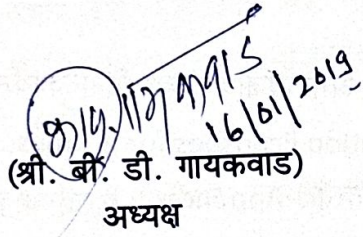 गायकवाड
16/01/2019
(श्री. बी. डी. गायकवाड)
अध्यक्ष